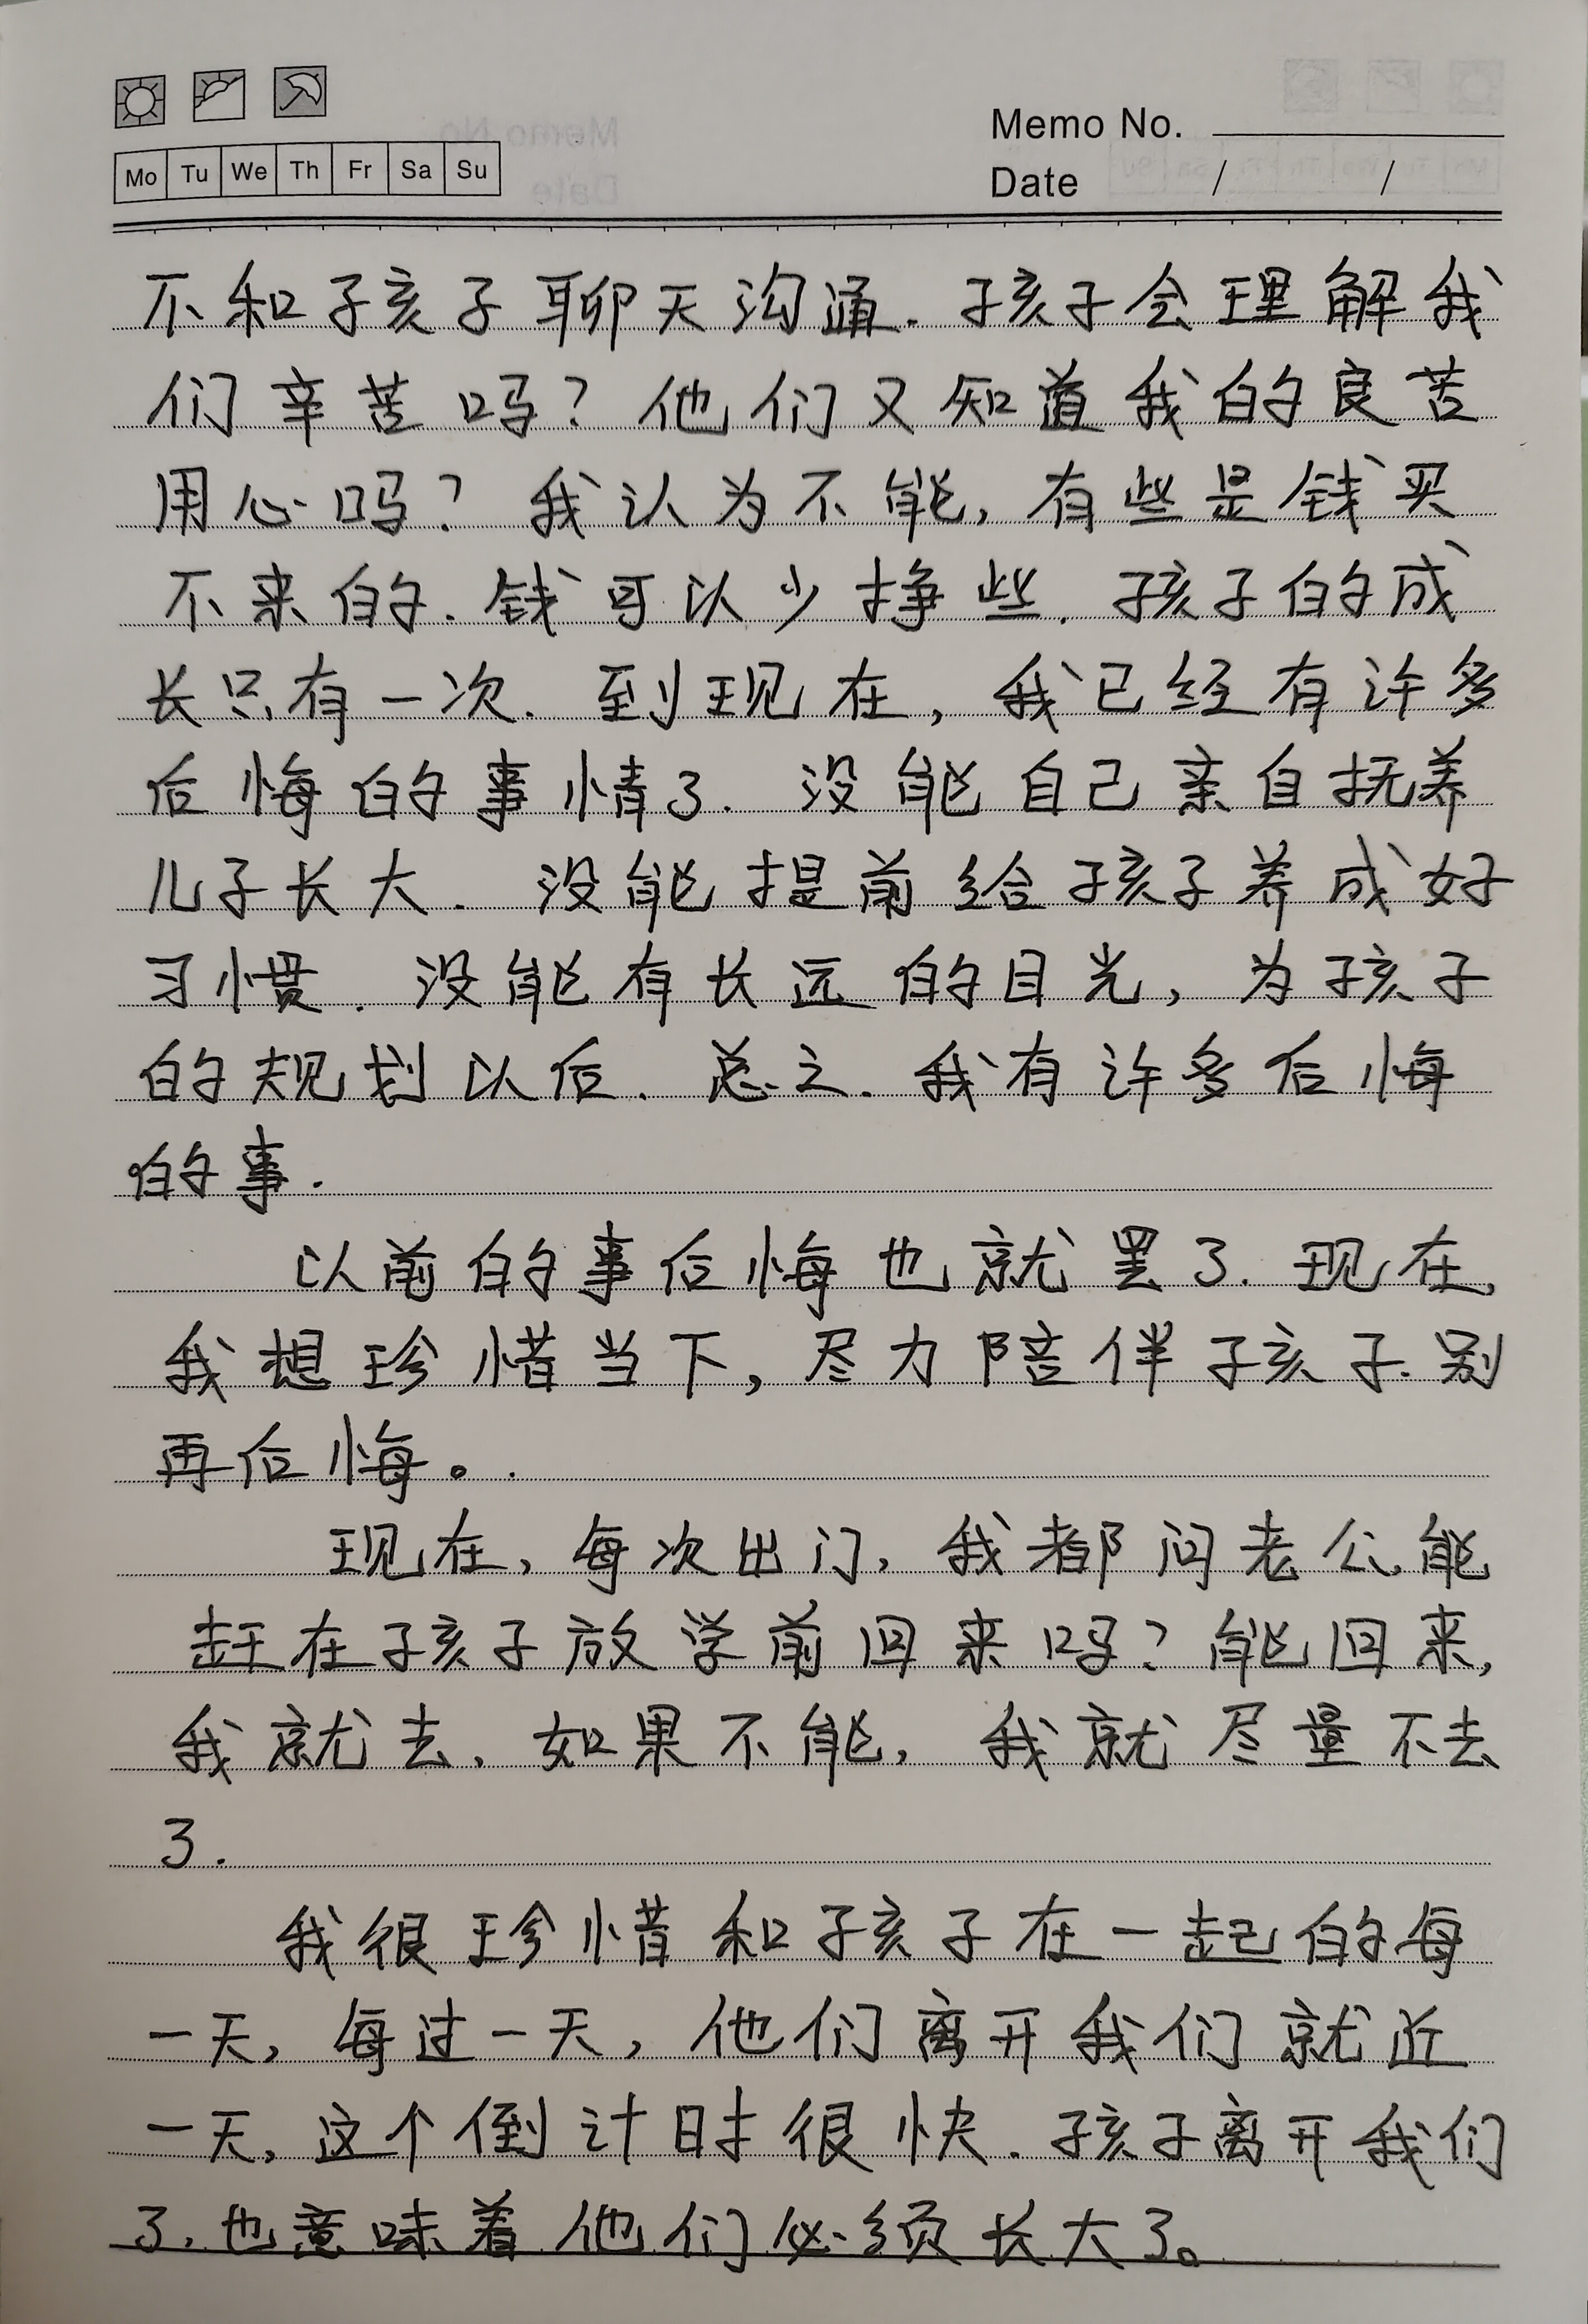 Memo No.
Mo Tu We Th Fr Sa Su
Date / /
不和孩子聊天沟通.孩子会理解我
们辛苦吗?他们又知道我的良苦
用心吗?我认为不能,有些是钱买
不来的.钱可以少挣些.孩子的成
长只有一次.到现在,我已经有许多
后悔的事情了.没能自己亲自抚养
儿子长大.没能提前给孩子养成好
习惯.没能有长远的目光,为孩子
的规划以后.总之.我有许多后悔
的事.
以前的事后悔也就罢了.现在,
我想珍惜当下,尽力陪伴孩子.别
再后悔。.
现在,每次出门,我都问老公,能
赶在孩子放学前回来吗?能回来,
我就去,如果不能,我就尽量不去
了.
我很珍惜和孩子在一起的每
一天,每过一天,他们离开我们就近
一天,这个倒计时很快.孩子离开我们
了,也意味着他们必须长大了。